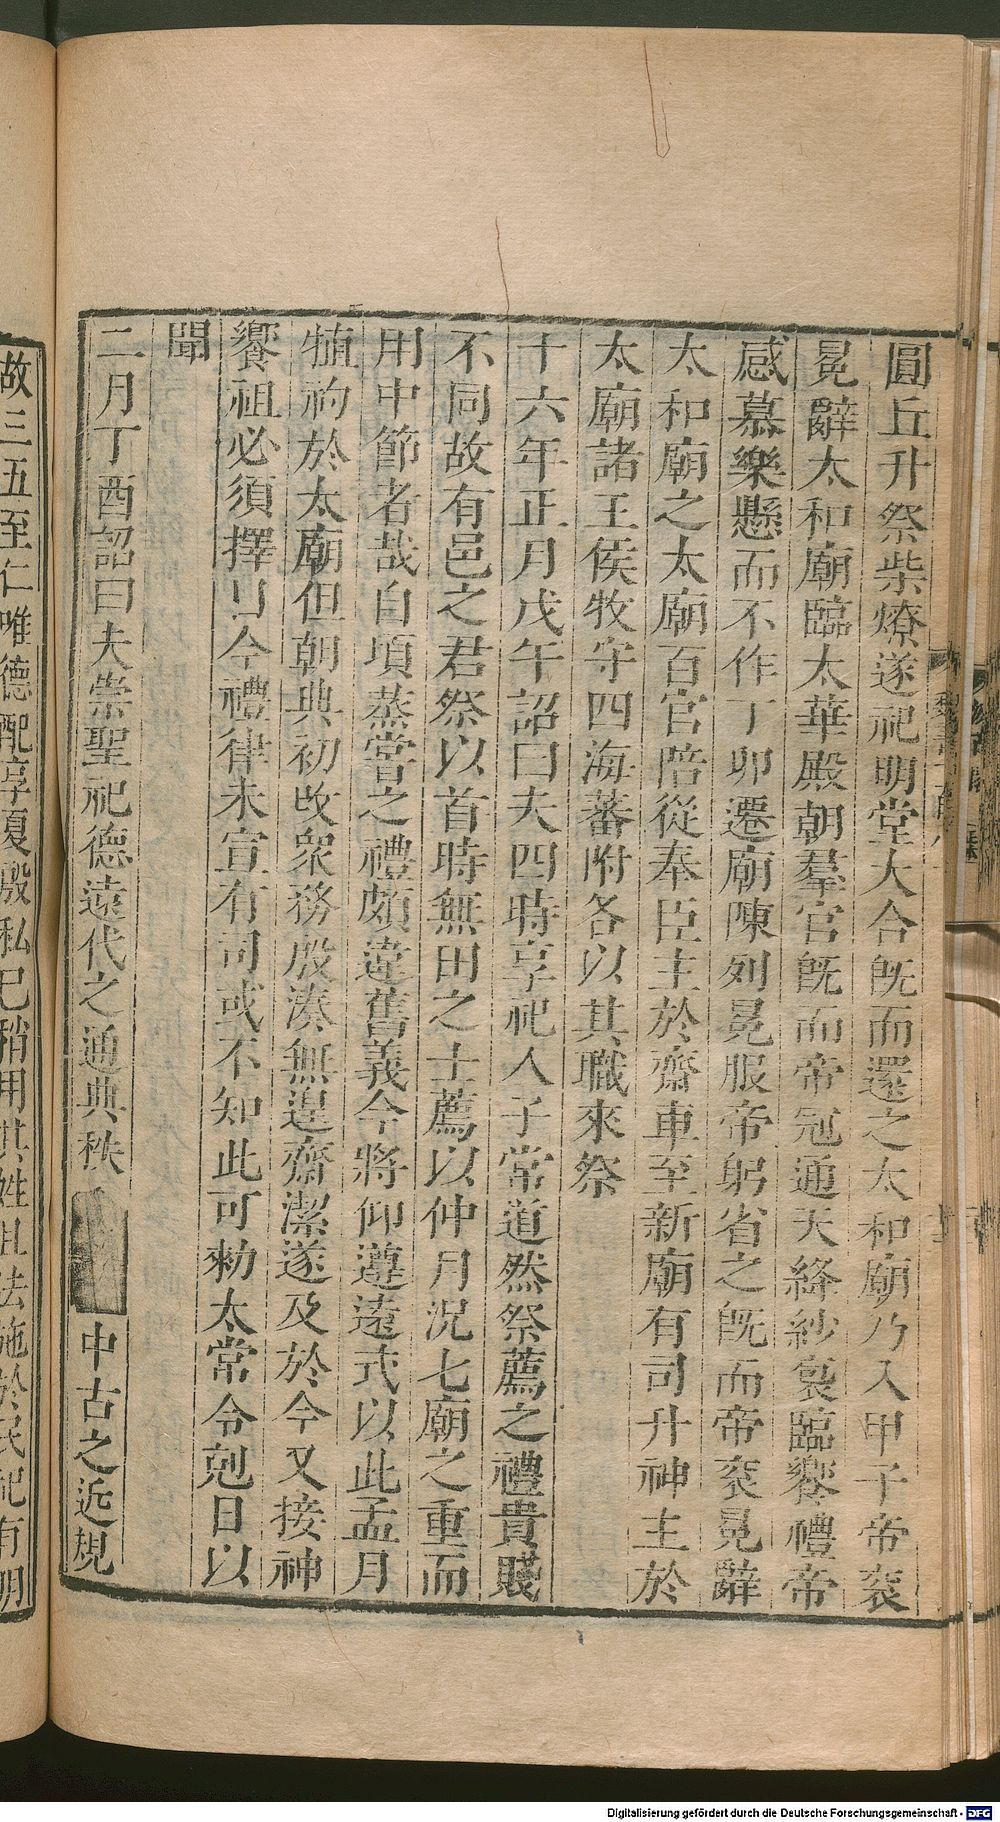 圓丘升祭柴燎遂祀明堂大合旣而還之太和廟乃入甲子帝衮
冕辭太和廟臨太華殿朝羣官旣而帝冠通天絳紗袞臨饗禮帝
感慕樂懸而不作丁卯遷廟陳列冕服帝躬省之旣而帝衮冕辭
太和廟之太廟百官陪從奉臣主於齋車至新廟有司升神主於
太廟諸王侯牧守四海蕃附各以其職來祭
十六年正月戊午詔曰夫四時享祀人子常道然祭薦之禮貴賤
不同故有邑之君祭以首時無田之士薦以仲月況七廟之重而
用中節者哉自頃蒸嘗之禮頗違舊義今將仰遵遠式以此孟月
犆礿於太廟但朝典初改衆務殷湊無遑齋潔遂及於今又接神
饗祖必須擇日今禮律未宣有司或不知此可勑太常令剋日以
聞
二月丁酉詔曰夫崇聖祀德遠代之通典秩中古之近規
故三五至仁唯德配享夏殷私己稍用其姓且法施於民祀有明
Digitalisierung gefördert durch die Deutsche Forschungsgemeinschaft - DFG